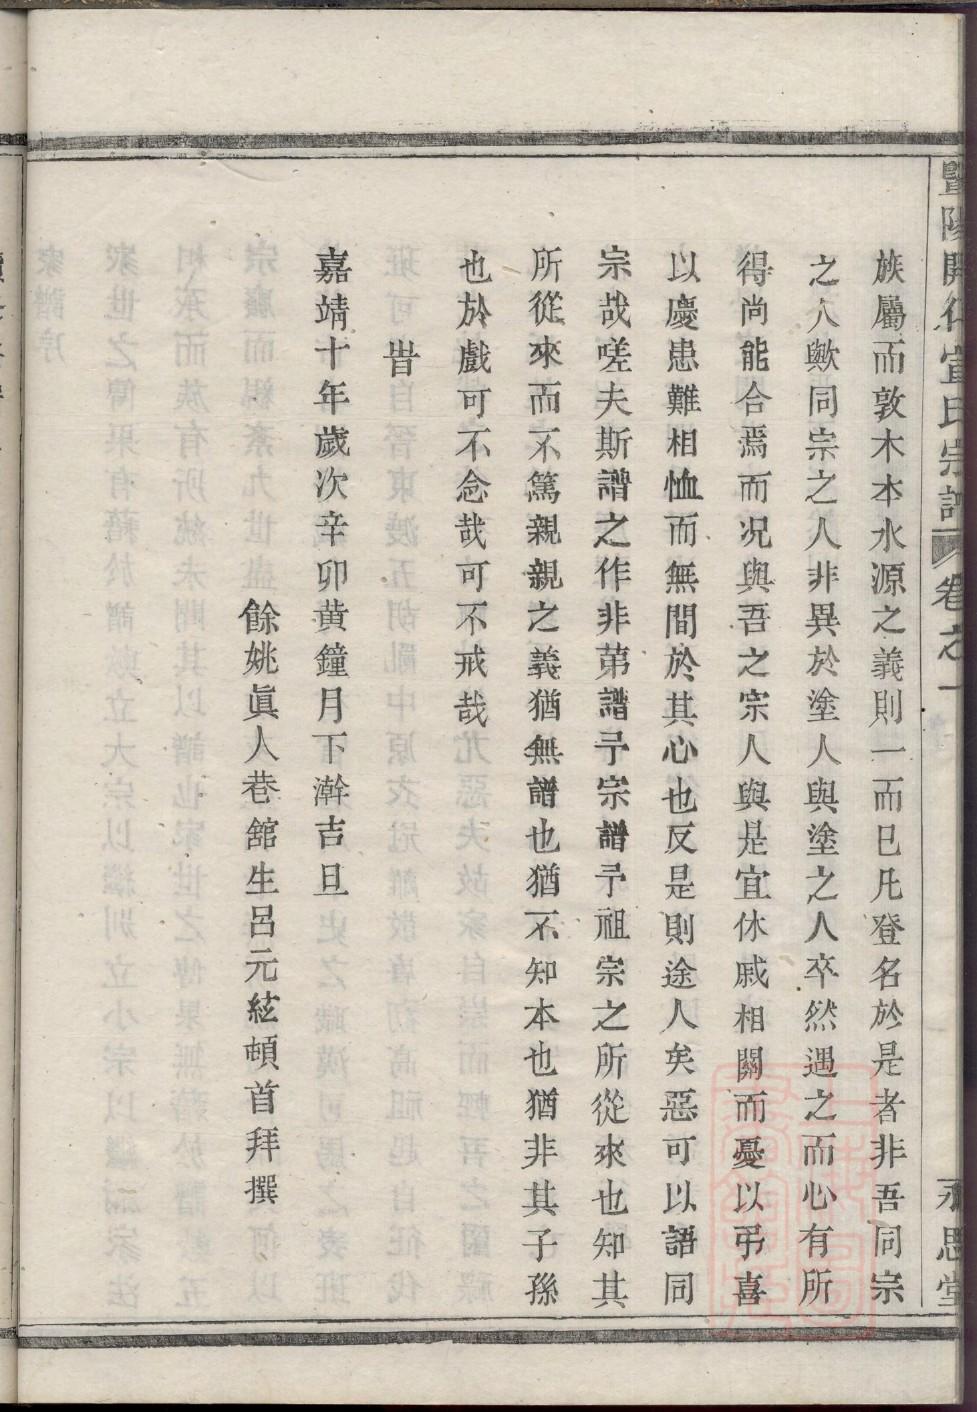 暨陽開化宣氏宗譜 卷之一 永思堂
族屬而敦木本水源之義則一而已凡登名於是者非吾同宗
之人歟同宗之人非異於塗人與塗之人卒然遇之而心有所
得尚能合焉而况與吾之宗人與是宜休戚相關而憂以弔喜
以慶患難相恤而無間於其心也反是則途人矣惡可以語同
宗哉嗟夫斯譜之作非第譜予宗譜予祖宗之所從來也知其
所從來而不篤親親之義猶無譜也猶不知本也猶非其子孫
也於戲可不念哉可不戒哉
旹
嘉靖十年歲次辛卯黃鐘月下澣吉旦
餘姚眞人巷舘生呂元紘頓首拜撰